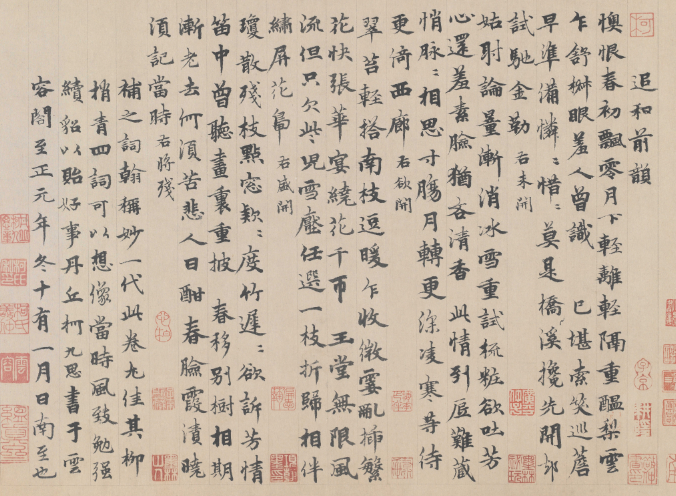 追和前韻
懊恨春初飄零月下輕離輕隔重醞梨雲
乍舒椒眼羞人曾識 已堪索笑巡簷
早準備憐〻惜〻莫是橋溪攙先開卻
試馳金勒 右未開
姑射論量漸消冰雪重試梳粧欲吐芳
心還羞素臉猶吝清香 此情到底難藏
悄脉〻相思寸腸月轉更深凌寒等待
更倚西廊 右欲開
翠苔輕搭南枝逗暖乍收微霎亂插繁
花快張華宴繞花千帀 玉堂無限風
流但只欠些〻兒雪壓任選一枝折歸相伴
繡屏花鳧 右盛開
瓊散殘枝點窓款〻度竹遲〻欲訴芳情
笛中曾聽畫裏重披 春移別樹相期
漸老去何須苦悲人日酣春臉霞漬曉
須記當時 右將殘
補之詞翰稱妙一代此卷尤佳其柳
梢青四詞可以想像當時風致勉強
續貂以貽好事丹丘柯九思書于雲
容閣至正元年冬十有一月日南至也